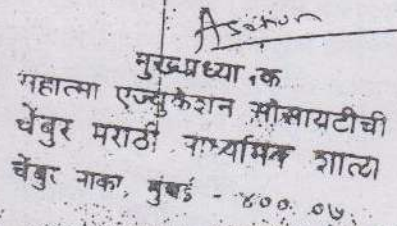 मुख्याध्यापक
महात्मा एज्युकेशन सोसायटीची
चेंबुर मराठी माध्यमिक शाळा
चेंबुर नाका, मुंबई - ४०० ०७.